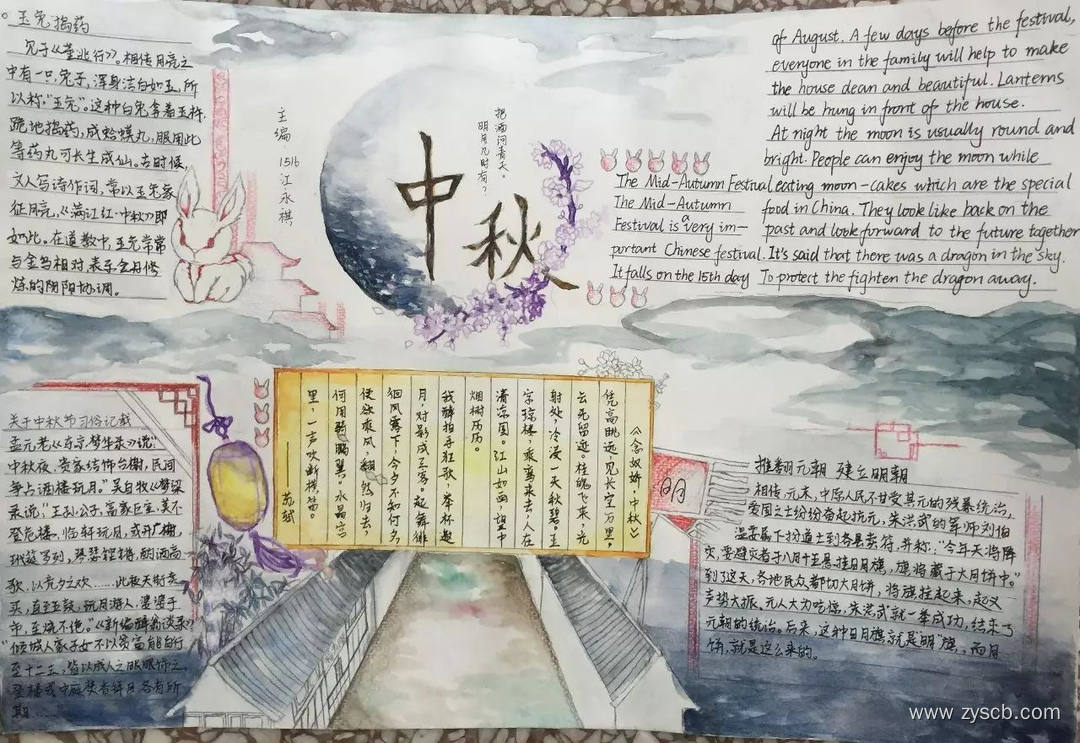 玉兔捣药
见于《董逃行》。相传月亮之
中有一只兔子，浑身洁白如玉，所
以称"玉兔"。这种白兔拿着玉杵，
跪地捣药，成蛤蟆丸，服用此
等药丸可长生成仙。古时候，
文人写诗作词，常以玉兔象
征月亮，《满江红·中秋》即
如此。在道教中，玉兔常常
与金乌相对，表示金丹修
炼的阴阳协调。
主编：1516江永祺
中秋
把酒问青天，
明月几时有？
The Mid-Autumn Festival
The Mid-Autumn
Festival is a very im-
portant Chinese festival.
It falls on the 15th day
of August. A few days before the festival,
everyone in the family will help to make
the house clean and beautiful. Lanterns
will be hung in front of the house.
At night the moon is usually round and
bright. People can enjoy the moon while
eating moon-cakes which are the special
food in China. They look like back on the
past and look forward to the future together
It's said that there was a dragon in the sky.
To protect the fighten the dragon away.
关于中秋节习俗记载
孟元老《东京梦华录》说：
中秋夜，贵家结饰台榭，民间
争占酒楼玩月。"吴自牧《梦梁
录说："王孙公子，富家巨室，莫不
登危楼，临轩玩月，或开广榭，
玳筵罗列，琴瑟铿锵，酌酒高
歌，以竞夕之欢……此夜天街卖
买，直至五鼓，玩月游人，婆娑于
市，至晓不绝。"《新编醉翁谈录》
"倾城人家子女不以贫富能自行
至十二三，皆以成人之服服饰之，
登楼或中庭焚香拜月，各有所
期……
《念奴娇·中秋》
凭高眺远，见长空万里，
云无留迹。桂魄飞来，光
射处，冷浸一天秋碧。玉
宇琼楼，乘鸾来去，人在
清凉国。江山如画，望中
烟树历历。
我醉拍手狂歌，举杯邀
月，对影成三客。起舞徘
徊风露下，今夕不知何夕，
便欲乘风，翻然归去，
何用骑鹏翼。水晶宫
里，一声吹断横笛。
——苏轼
明
推翻元朝 建立明朝
相传，元末，中原人民不甘受其元的残暴统治，
爱国之士纷纷奋起抗元，朱洪武的军师刘伯
温命属下扮道士到各县卖符，并称："今年天将降
灾，要避灾者于八月十五悬挂日月旗，旗将藏于大月饼中。"
到了这天，各地民众都切大月饼，将旗挂起来，起义
声势大振，元人大为吃惊，朱洪武就一举成功，结束了
元朝的统治。后来，这种日月旗，就是明旗，而月
饼，就是这么来的。
www.zyscb.com